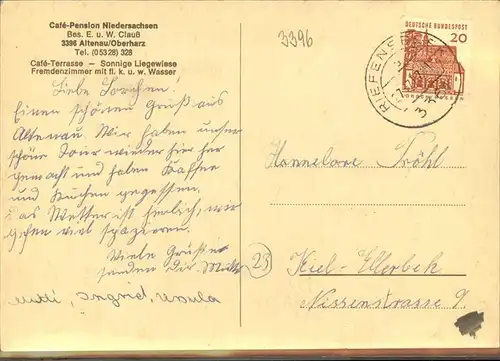 Café-Pension Niedersachsen
Bes. E. u. W. Clauß
3396 Altenau/Oberharz
Tel. (05328) 328
Café-Terrasse — Sonnige Liegewiese
Fremdenzimmer mit fl. k. u. w. Wasser
3396
DEUTSCHE BUNDESPOST
20
Liebe Lorchen.
Einen schönen Gruß aus
Altenau. Wir haben unser
schöne Tour wieder hier her
gemacht und haben Kaffee
und Kuchen gegessen.
Das Wetter ist herlich, wir
gehen viel spazieren.
Viele Grüße
senden Dir
Mutti, Ingrid, Ursula
Hannelore Pröhl
23
Kiel-Ellerbek
Nissenstrasse 9.